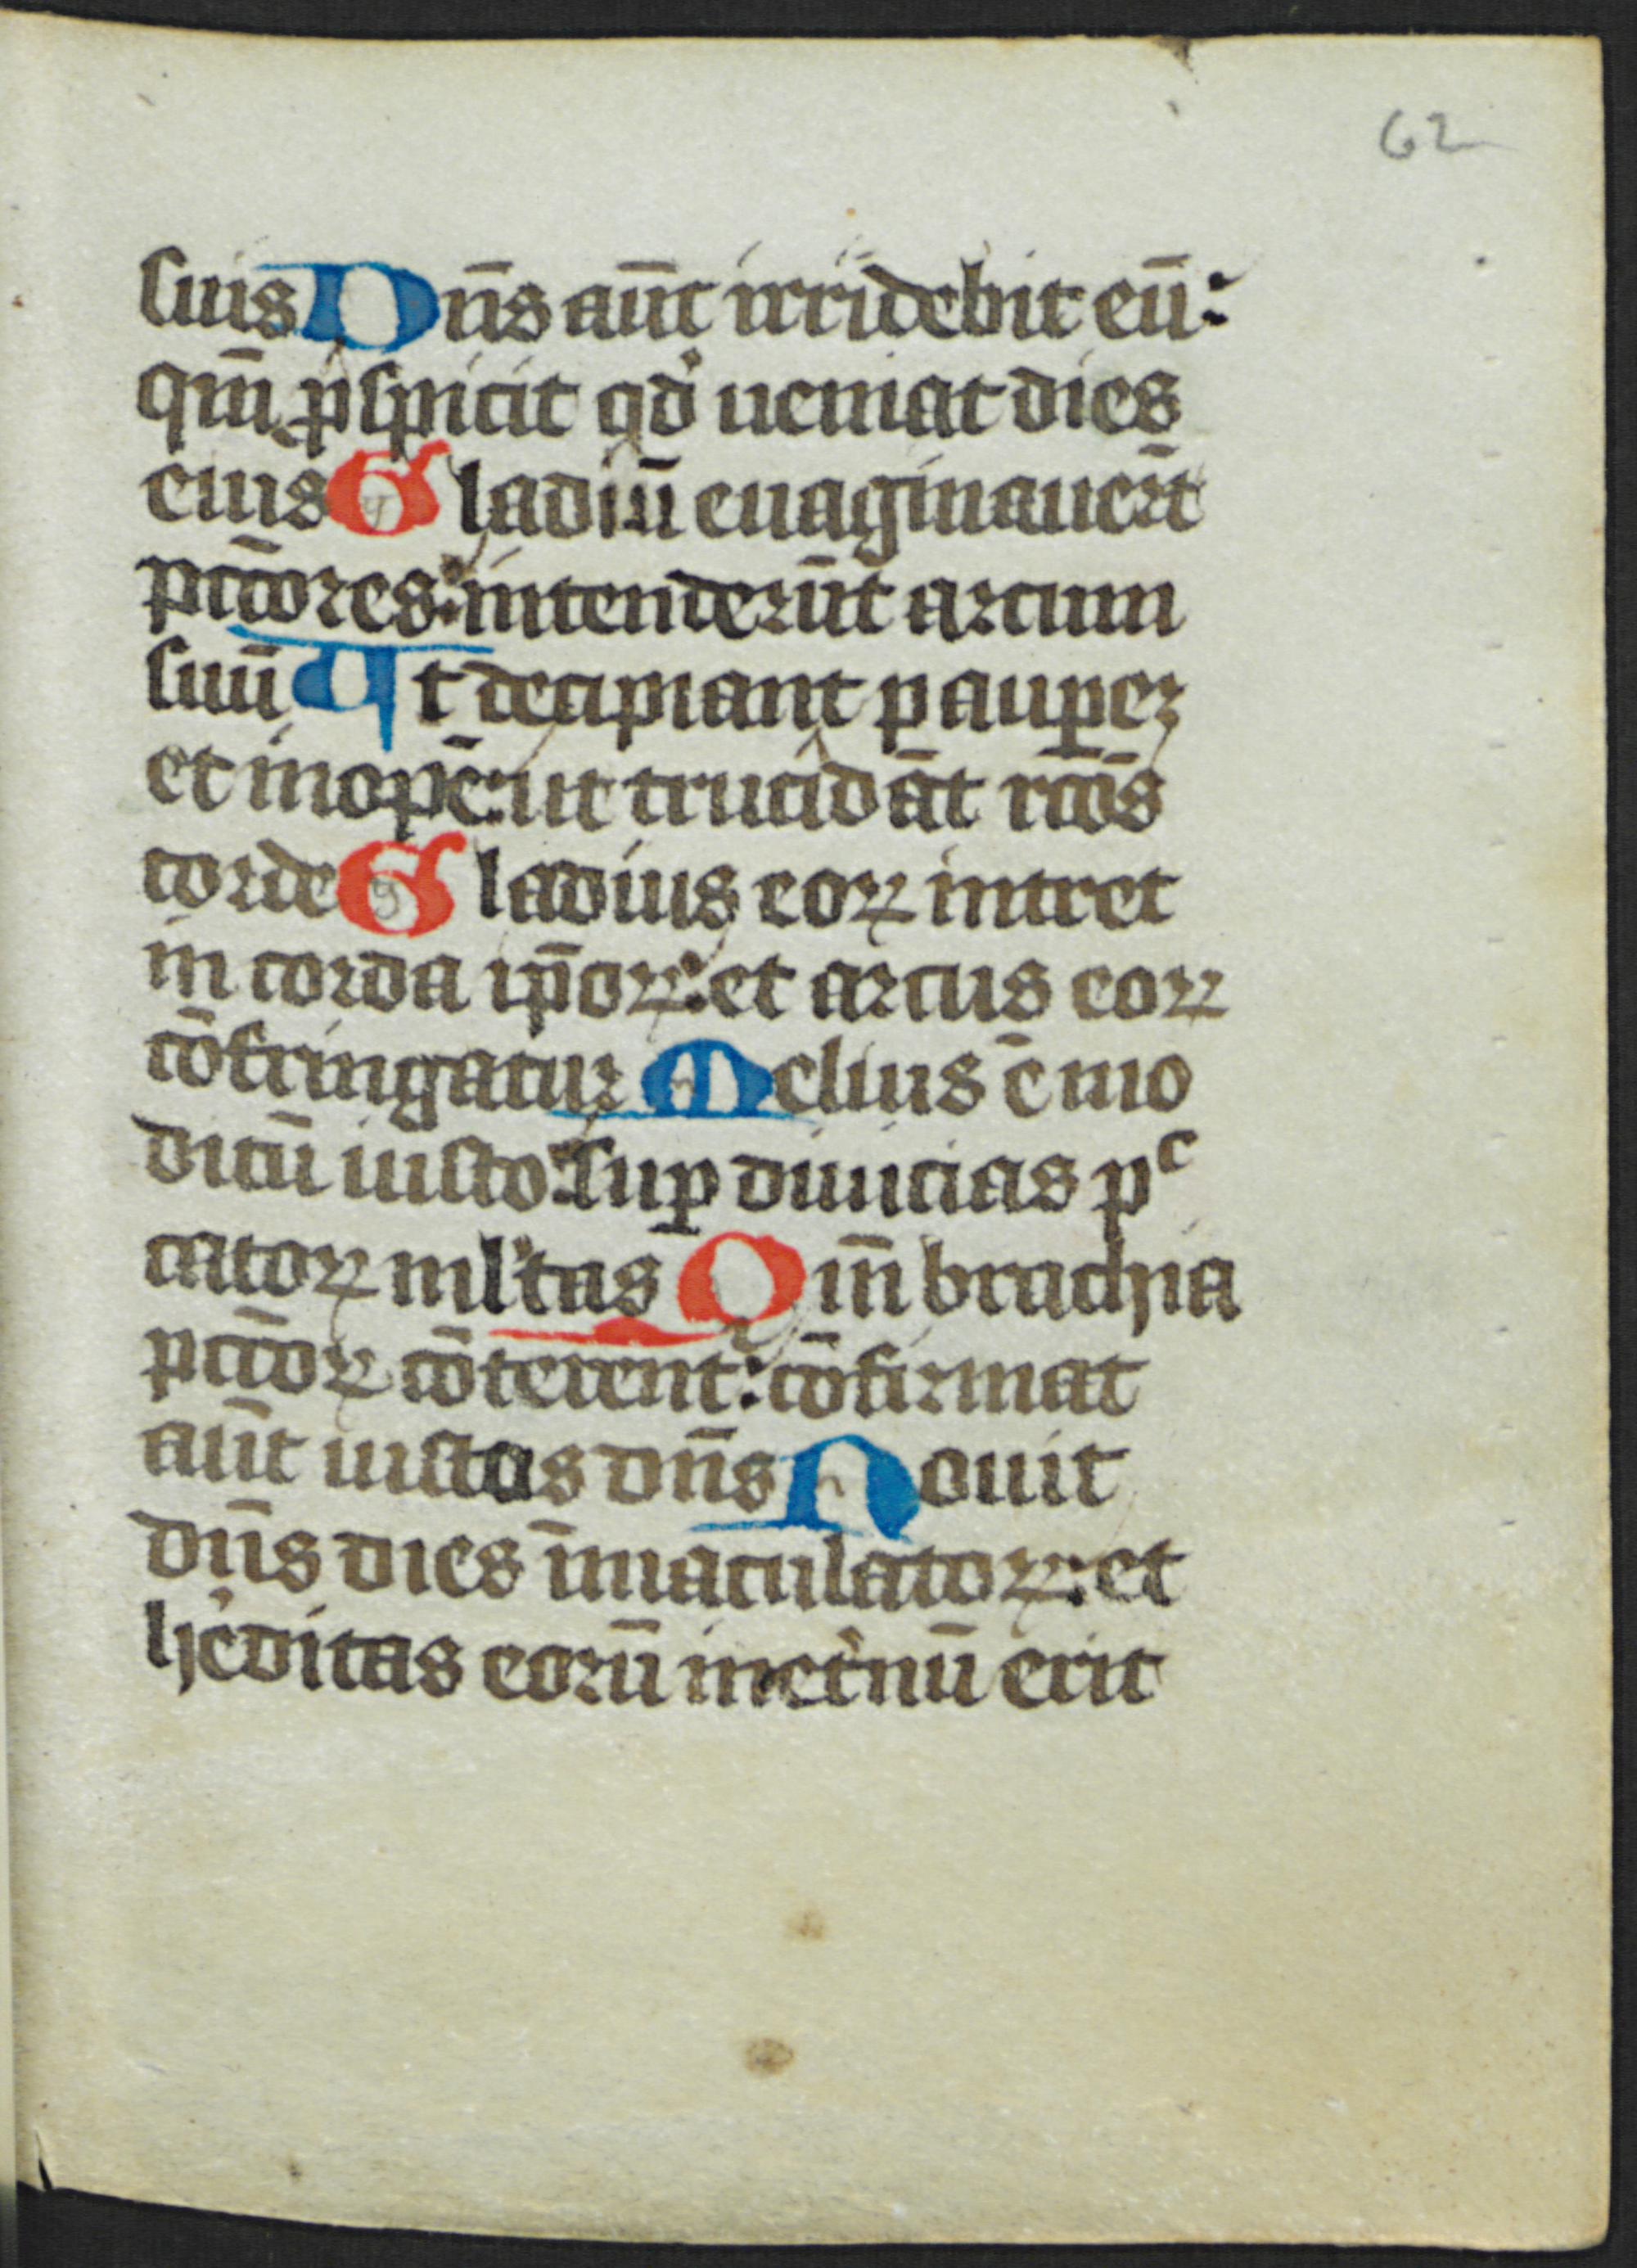 62
suis Dn̄s aūt irridebit eū:
qm̄ ꝓspicit qd̓ ueniat dies
eius Gladiū euaginauer̄t
pc̄cores: intenderūt arcum
suū Ut decipiant pauꝑeꝫ
et inopē: ut trucidāt rc̄os
corde Gladius eoꝝ intret
in corda ip̄oꝝ: et arcus eoꝝ
cōfringatur Melius ē mo
dicū iusto: suꝑ diuicias pᶜ
catoꝝ ml̓tas Qm̄ brachia
pc̄toꝝ cōterent᷑: cōfirmat
aūt iustos dn̄s Nouit
dn̄s dies īmaculatoꝝ: et
he̓ditas eorū inet̓nū erit